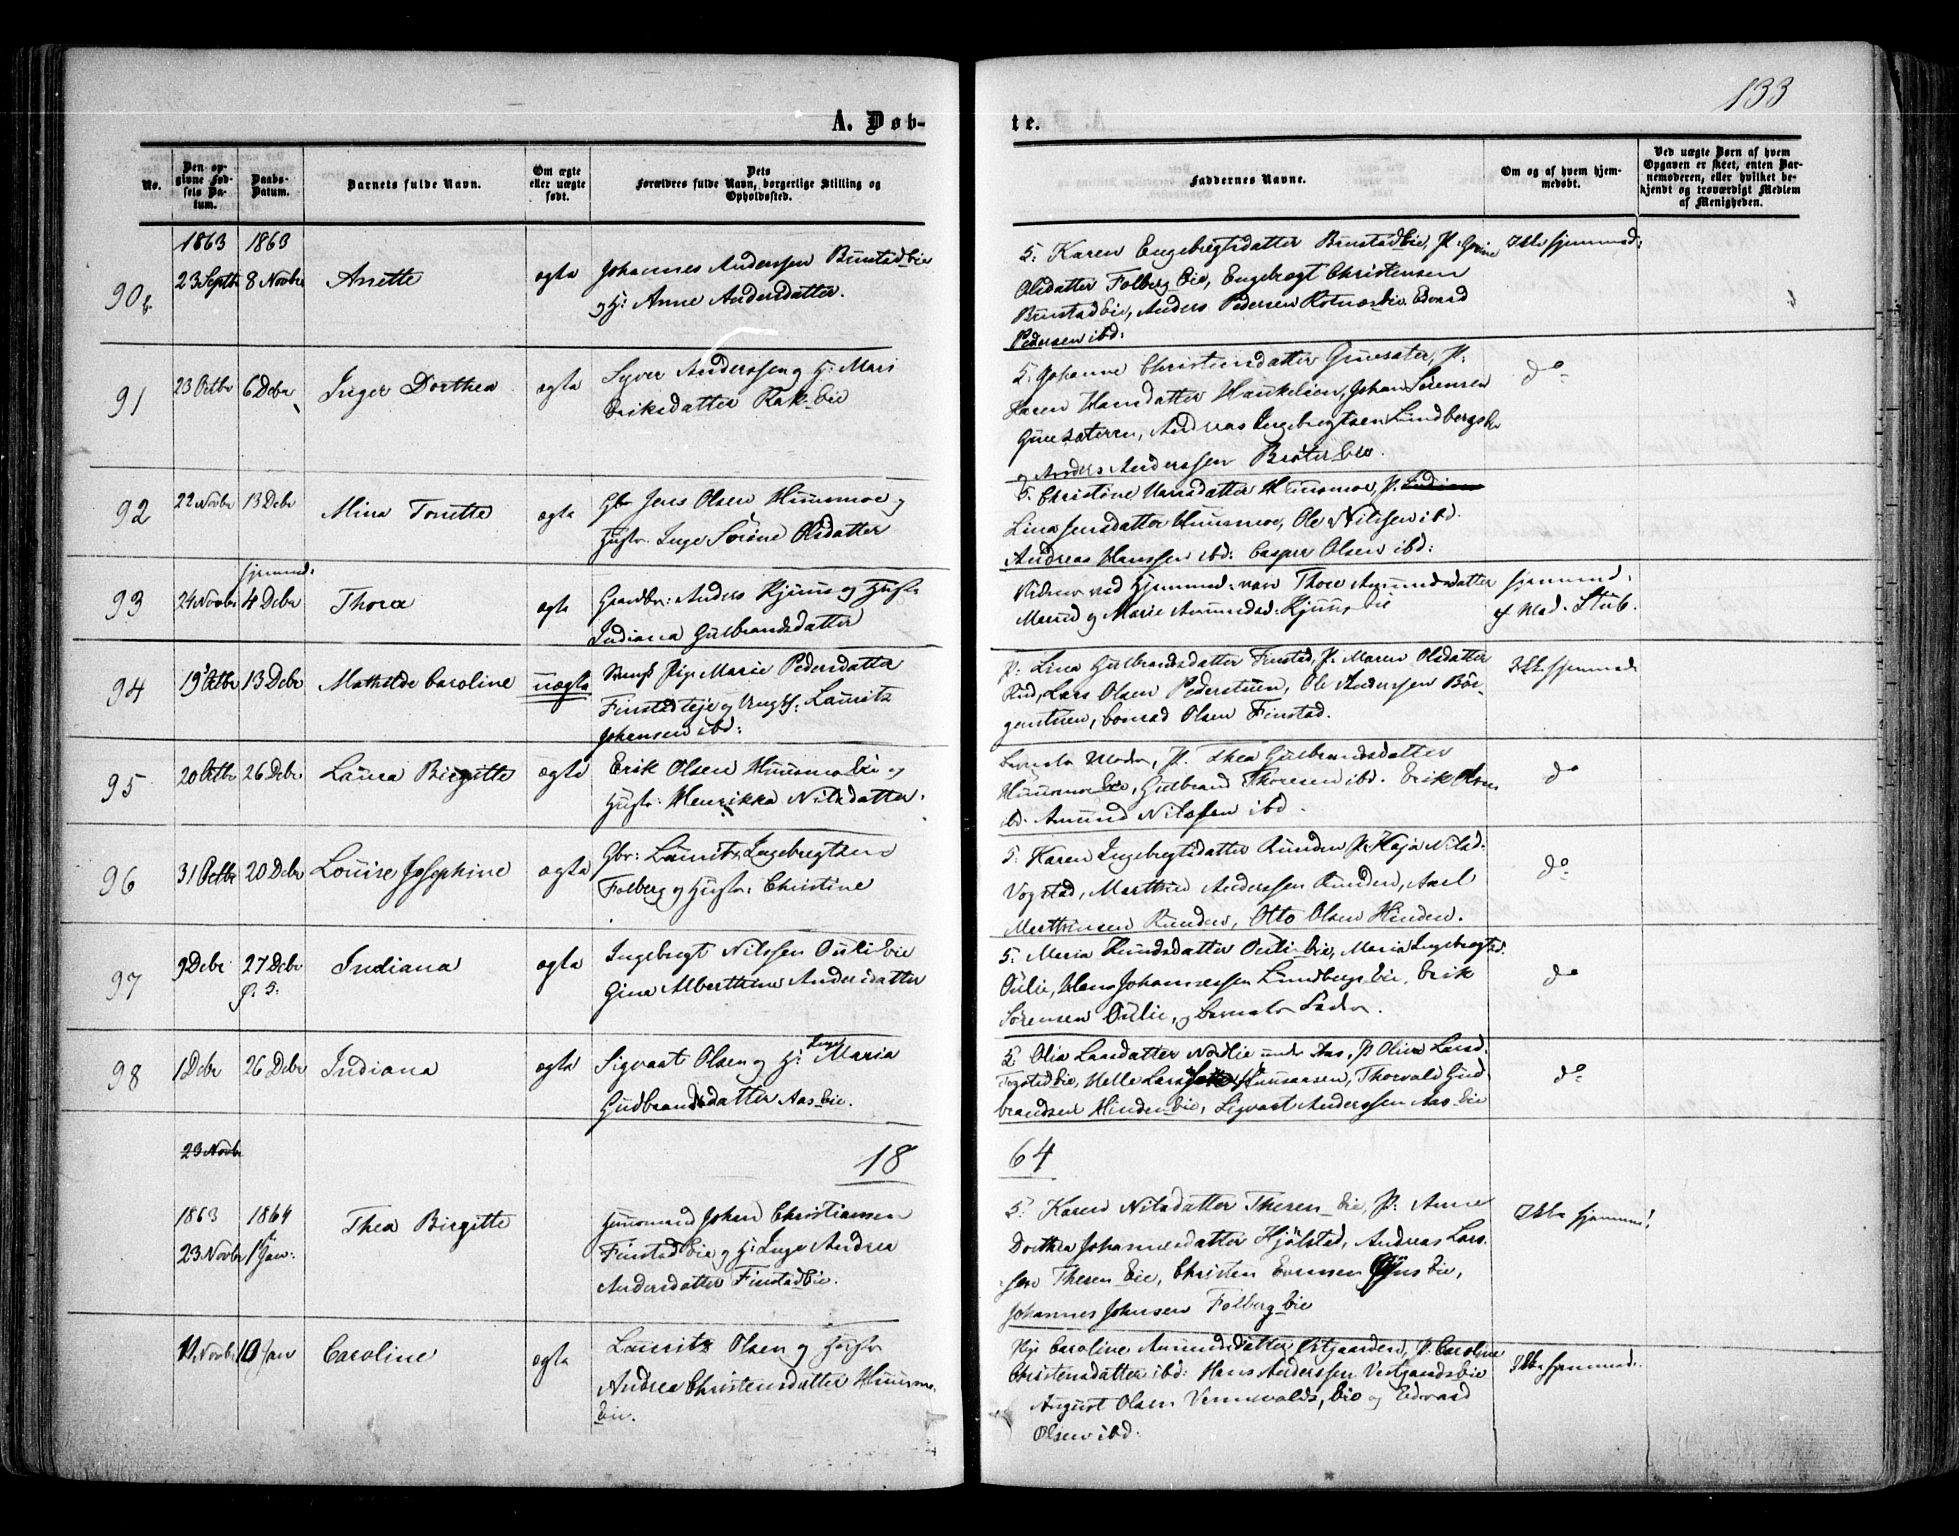 133
A. Døb-
te.
No.
Den op-
givne Fød-
sels Da-
tum.
Daabs-
Datum.
Barnets fulde Navn.
Om ægte
eller uægte
født.
Dets
Forældres fulde Navn, borgerlige Stilling og
Opholdssted.
Faddernes Navne.
Om og af hvem hjem-
medøbt.
Ved uægte Børn af hvem
Opgaven er skeet, enten Bar-
nemoderen, eller hvilket be-
kjendt og troværdigt Medlem
af Menigheden.
1863 1863
90b 23 Septbr 8 Novbr Anette ægte Johannes Anderssen Bunstadeie
og H: Anne Andersdatter.
S: Karen Engebregtsdatter Bunstadeie, P:
Olsdatter Folberg Eie, Engebregt Christensen
Bunstadeie, Anders Pedersen Rotnæseie Edvard
Pedersen ibd:
Ikke hjemmed:
91 23 Octbr 6 Debr Inger Dorthea ægte Syver Anderssen og H: Mari
Eriksdatter Rak-eie
S. Johanne Christiansdatter P:
Karen Hansdatter Haukelien, Johan Sørensen
Andreas Ingebregtsen Lundbergseie
og Anders Anderssen Bråter-eie.
do
92 22 Novbr 13 Debr Mina Tonette ægte Gbr Jens Olsen Huusmoe og
Hustr. Inge Sørine Olsdatter
S. Christine Hansdatter Huusmoe, P.
Lina Jensdatter Huusmoe, Ole Nilssen ibd.
Andreas Hanssen ibd: Casper Olsen ibd:
93 24 Novbr hjemmed: 4 Debr Thora ægte Gaardbr: Anders Kjuus og Hustr
Indiana Gulbrandsdatter
Vidner ved Hjemmed: vare Thore Amundsdatter
og Marie Amundsd. Kjuus eie
hjemmed.
af Mad. Stub.
94 19 Octbr 13 Debr Mathilde Caroline uægte Ungk Pige Marie Pedersdatter
Finstadeje og Ungk: Lauritz
Johansen ibd:
P: Lina Gulbrandsdatter Finstad, P. Maren Olsdatter
Rud, Lars Olsen Pederstuen, Ole Anderssen Bør-
genstuen, Conrad Olsen Finstad.
Ikke hjemmed.
95 20 Octbr 26 Debr Laura Birgitte ægte Erik Olsen Huusmoeie og
Hustr: Henrikka Nilsdatter.
Barnets Moder, P. Thea Gulbrandsdatter
Huusmoeeie, Gulbrand Thoresen ibd. Erik Olsen
ibd. Amund Nilssen ibd.
do
96 31 Octbr 20 Debr Louise Josephine ægte Gbr: Laurits Ingebregtsen
Folberg og Hustr: Christine
S: Karen Ingebregtsdatter Runden P: Kaja Nilsd:
Vogstad, Marthin Anderssen Runden, Axel
Marthinsen Runden, Otto Olsen Hinden.
do
97 9 Debr 27 Debr Indiana ægte Ingebregt Nilssen Oulieie
Gina Alberthine Andersdatter
S. Maria Knudsdatter Oulieeie, Maria Ingebregtsd.
Oulie, Hans Johannessen Lundbergs Eie, Erik
Sørensen Oulie, og Barnets Fader.
do
98 1 Debr 26 Debr Indiana ægte Sigvart Olsen og H: Inger Maria
Gudbrandsdatter Aaseie.
S. Olia Larsdatter Nordlie under Aas, P Oline Larsd.
Thorvald Gud-
brandsen Hindeneie, Sigvart Anderssen Aas Eie
do
23 Novbr
18
64
1863 1864
23 Novbr 1 Jan: Thea Birgitte
Huusmand Johan Christiansen
Finstadeie og H: Inge Andrea
Andersdatter Finstadeie.
S. Karen Nilsdatter Theren Eie, P: Anne
Dorthea Johannesdatter Hjølstad, Andreas Lars-
sen Theren Eie, Christen Evensen Eie,
Johannes Johnsen Folberg eie
Ikke hjemmed!
Novbr 10 Jan Caroline ægte Lauritz Olsen og Hustr
Andrea Christensdatter Huusmo
Eie.
Caroline Amundsdatter Østgaarden, P. Caroline
Christensdatter ibd: Hans Anderssen
August Olsen Vennevolds Eie og Edvard
Olsen ibd.
Ikke hjemmed.